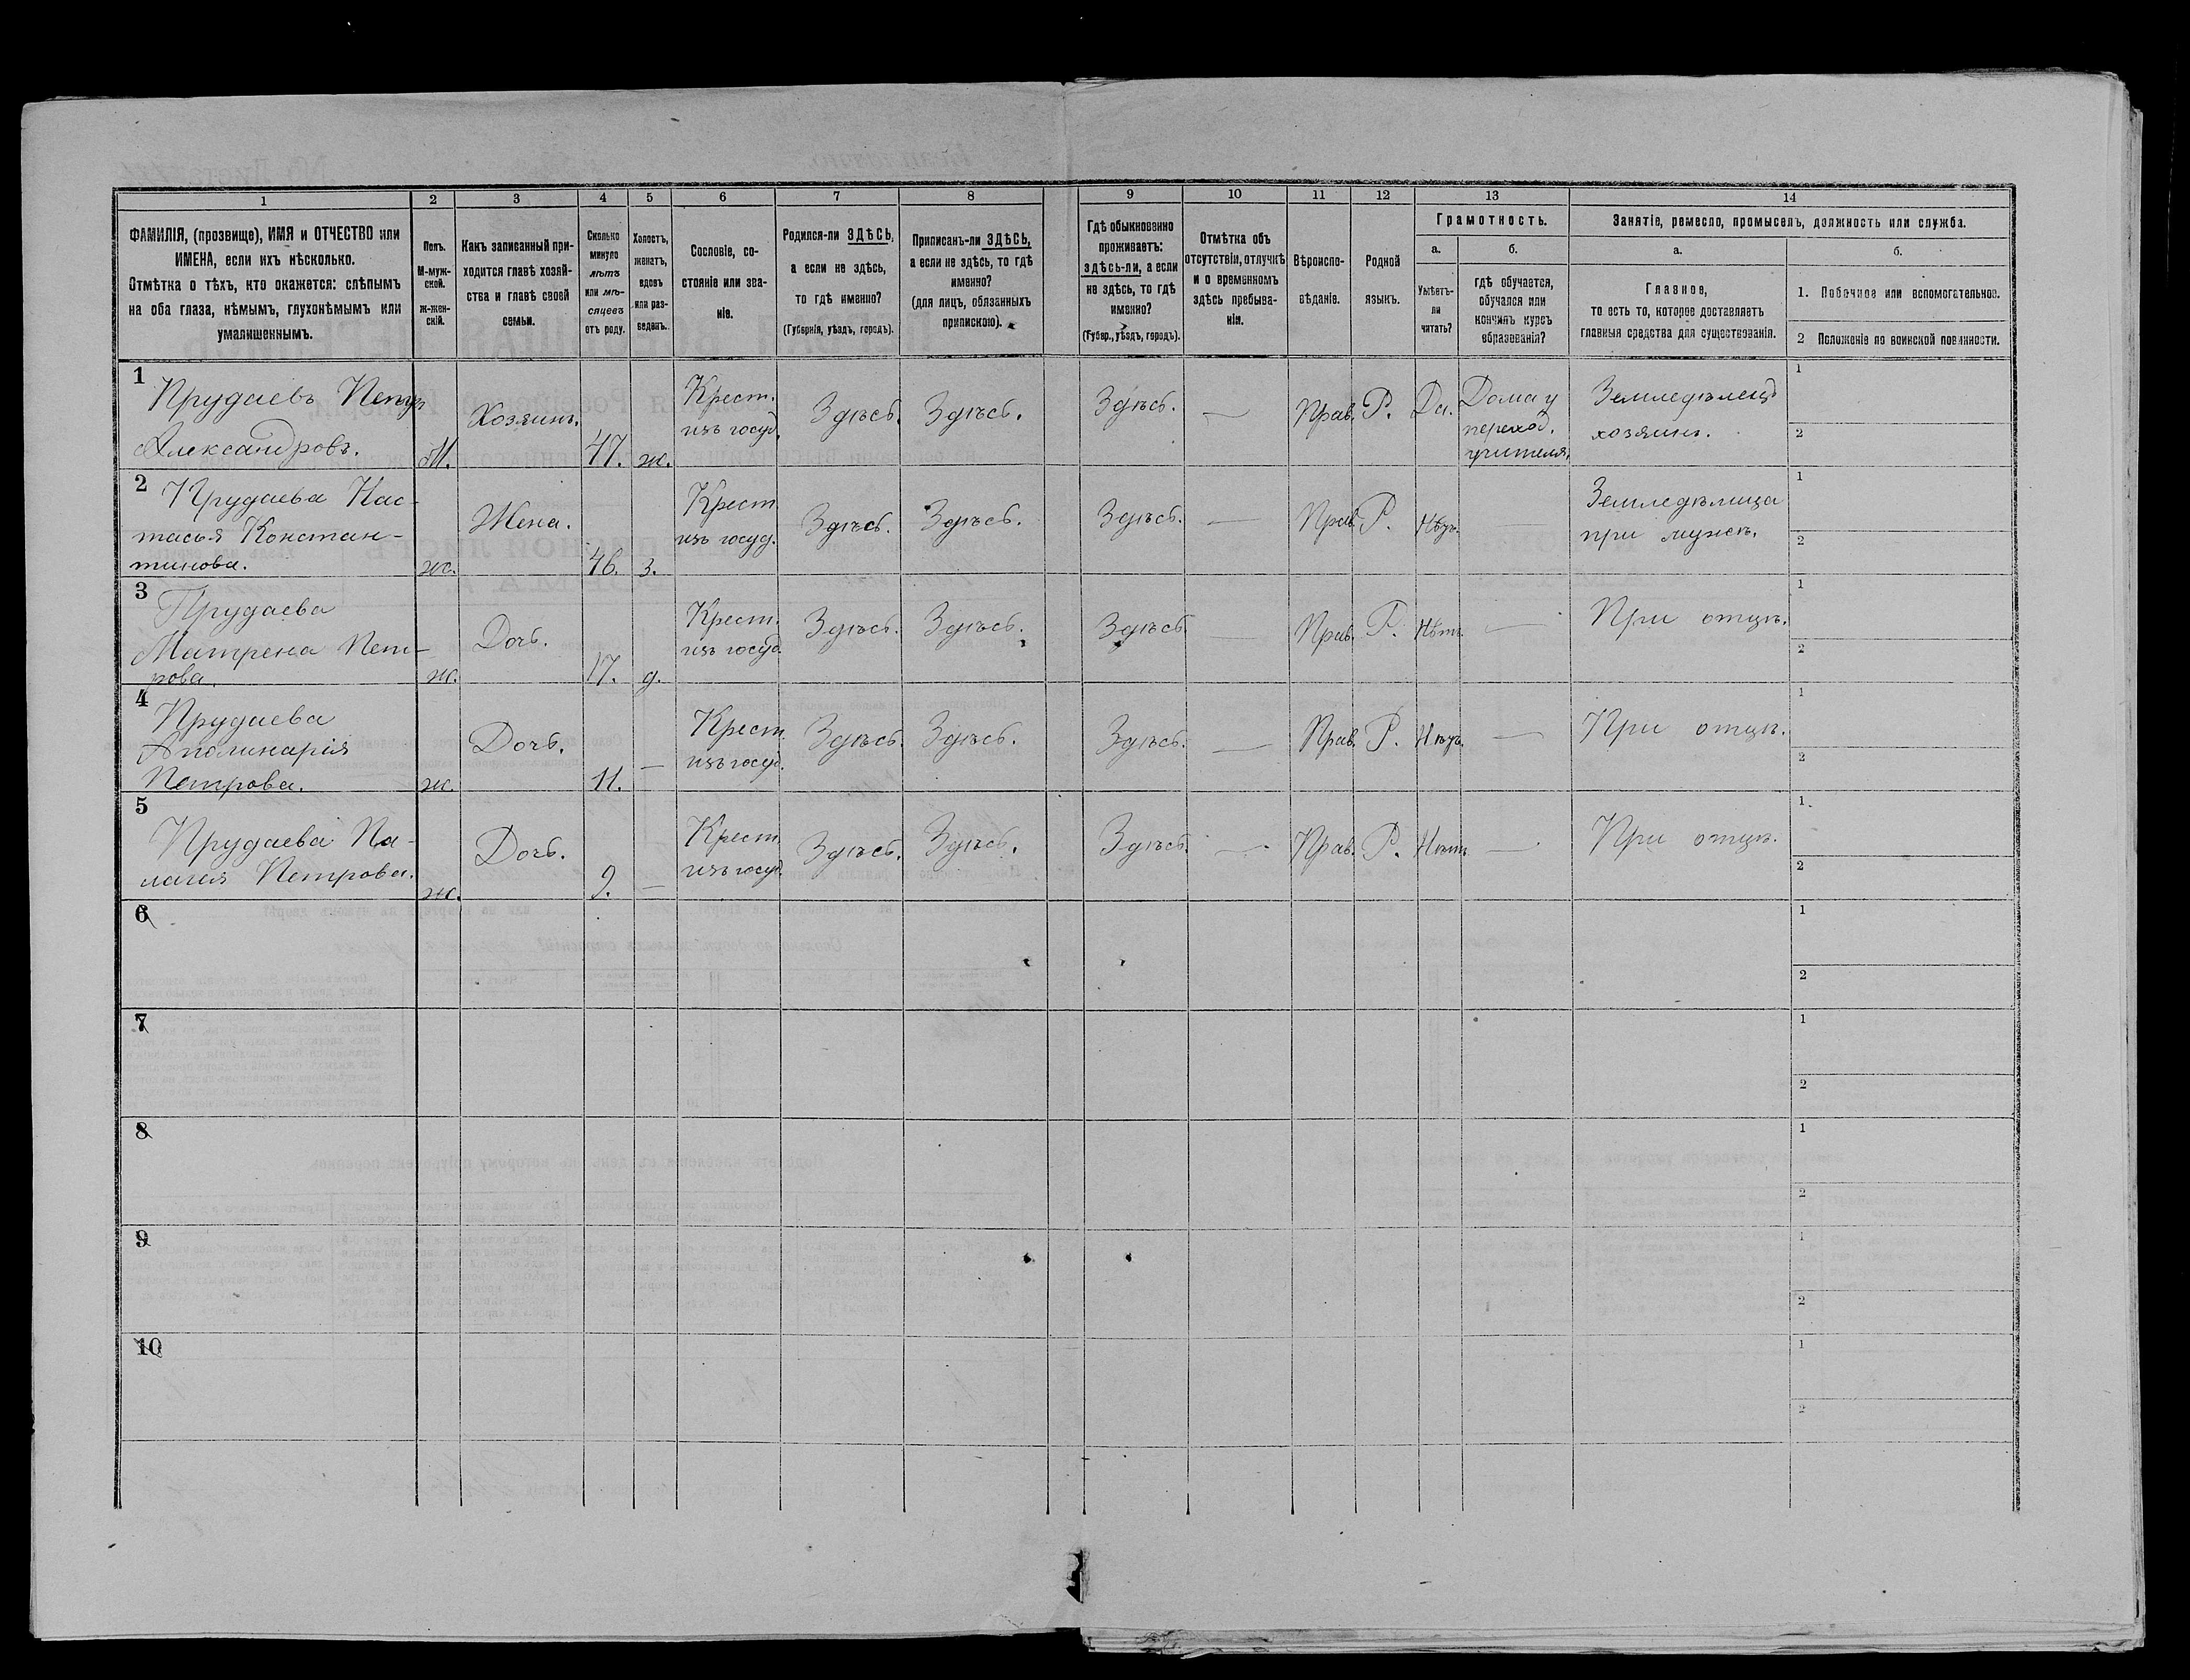 1 2 3 4 5 6 7 8 9 10 11 12 13 14
ФАМИЛІЯ, (прозвище), ИМЯ и ОТЧЕСТВО или
ИМЕНА, если ихъ нѣсколько.
Отмѣтка о тѣхъ, кто окажется: слѣпымъ
на оба глаза, нѣмымъ, глухонѣмымъ или
умалишеннымъ.
Полъ.
М-муж-
ской.
ж-жен-
скій.
Какъ записанный при-
ходится главѣ хозяй-
ства и главѣ своей
семьи.
Сколько
минуло
лѣтъ
или мѣ-
сяцевъ
отъ роду.
Холостъ,
женатъ,
вдовъ
или раз-
веденъ.
Сословіе, со-
стояніе или зва-
ніе.
Родился-ли ЗДѢСЬ,
а если не здѣсь,
то гдѣ именно?
(Губернія, уѣздъ, городъ).
Приписанъ-ли ЗДѢСЬ,
а если не здѣсь, то гдѣ
именно?
(для лицъ, обязанныхъ
припискою).
Гдѣ обыкновенно
проживаетъ:
здѣсь-ли, а если
не здѣсь, то гдѣ
именно?
(Губер., уѣздъ, городъ).
Отмѣтка объ
отсутствіи, отлучкѣ
и о временномъ
здѣсь пребыва-
ніи.
Вѣроиспо-
вѣданіе.
Родной
языкъ.
Грамотность.
а.
Умѣетъ-
ли
читать?
б.
гдѣ обучается,
обучался или
кончилъ курсъ
образованія?
Занятіе, ремесло, промыселъ, должность или служба.
а.
Главное,
то есть то, которое доставляетъ
главныя средства для существованія.
б.
1. Побочное или вспомогательное.
2 Положеніе по воинской повинности.
1
Прудаевъ Петръ
Александровъ.
М.
Хозяинъ.
47.
ж.
Крест.
изъ госуд.
Здѣсь.
Здѣсь.
Здѣсь.
—
Прав.
Р.
Да.
Дома у
переход.
учителя.
Земледѣлецъ
хозяинъ.
1
2
2
Прудаева Нас-
тасья Констан-
тинова.
ж.
Жена.
46.
з.
Крест.
изъ госуд.
Здѣсь.
Здѣсь.
Здѣсь.
—
Прав.
Р.
Нѣтъ.
Земледѣлица
при мужѣ.
1
2
3
Прудаева
Матрена Пет-
рова.
ж.
Дочь.
17.
д.
Крест.
изъ госуд.
Здѣсь.
Здѣсь.
Здѣсь.
—
Прав.
Р.
Нѣтъ.
—
При отцѣ.
1
2
4
Прудаева
Аполинарія
Петрова.
ж.
Дочь.
11.
—
Крест.
изъ госуд.
Здѣсь.
Здѣсь.
Здѣсь.
—
Прав.
Р.
Нѣтъ.
—
При отцѣ.
1
2
5
Прудаева Па-
лагея Петрова.
ж.
Дочь.
9.
—
Крест.
изъ госуд.
Здѣсь.
Здѣсь.
Здѣсь.
—
Прав.
Р.
Нѣтъ.
—
При отцѣ.
1
2
6
1
2
7
1
2
8
1
2
9
1
2
10
1
2